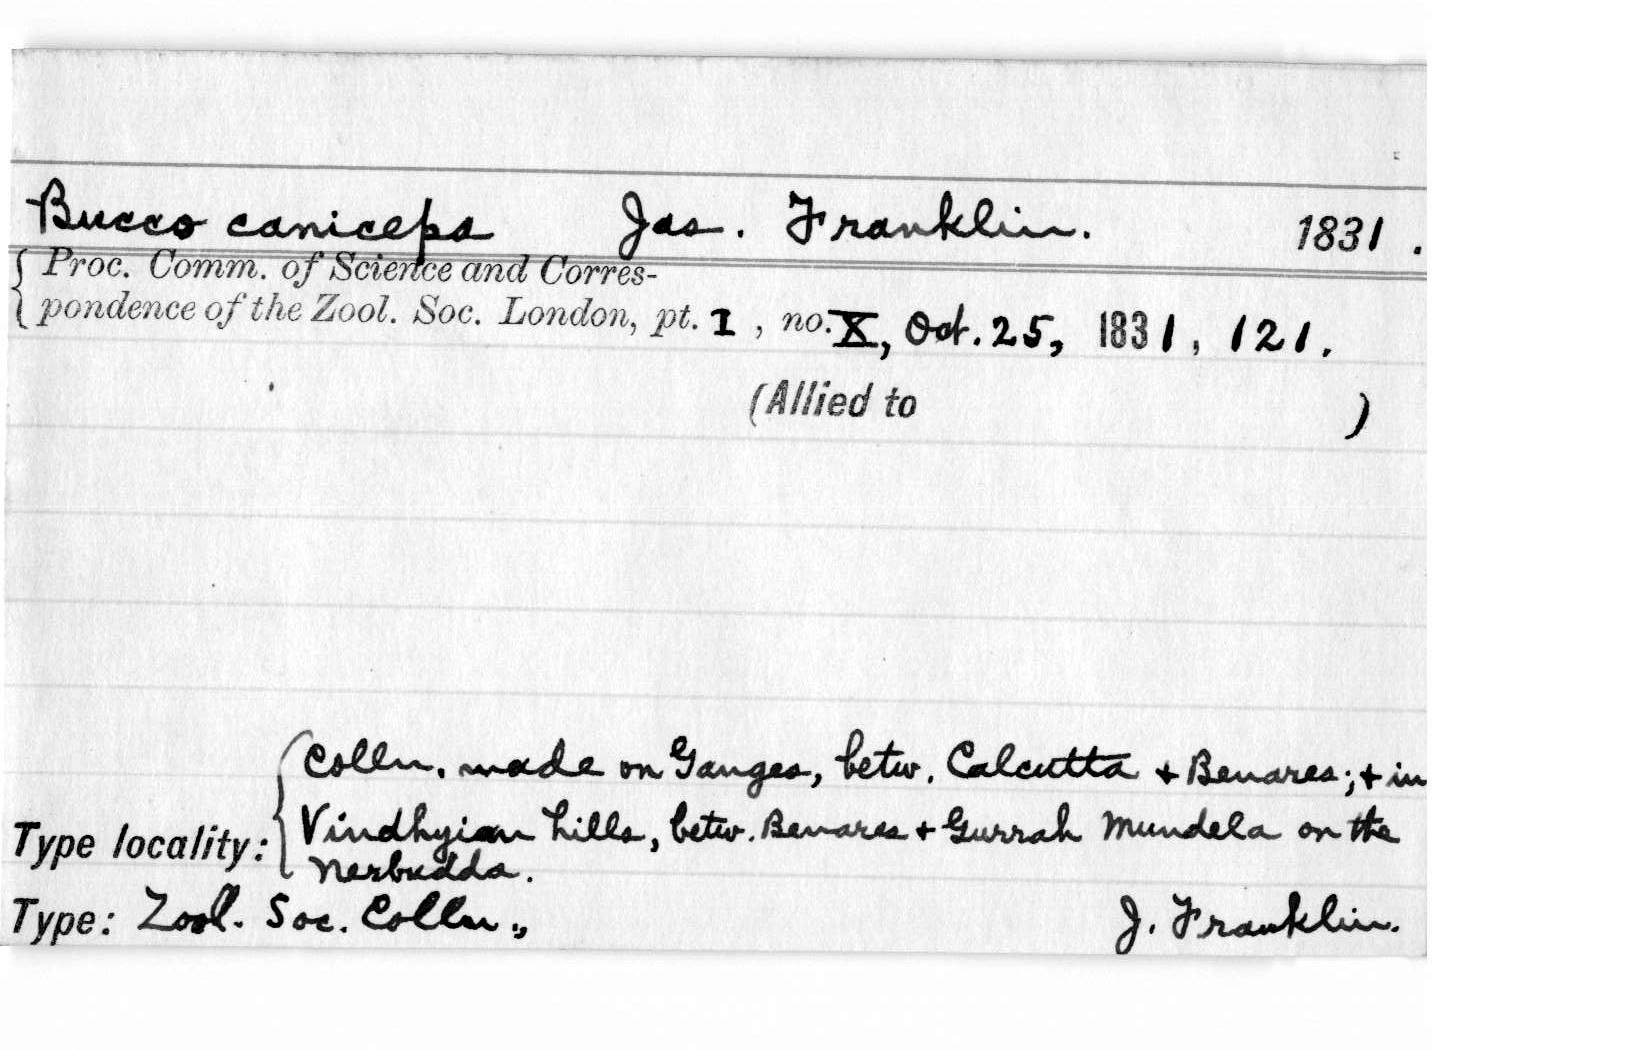 Bucco caniceps Jas. Franklin. 1831.
Proc. Comm. of Science and Corres-
pondence of the Zool. Soc. London, pt. I, no. X, Oct. 25, 1831, 121.
(Allied to )
Colln. made on Ganges, betw. Calcutta + Benares; + in
Type locality: Vindhyian hills, betw. Benares + Gurrah Mundela on the
Nerbudda.
Type: Zool. Soc. Colln., J. Franklin.